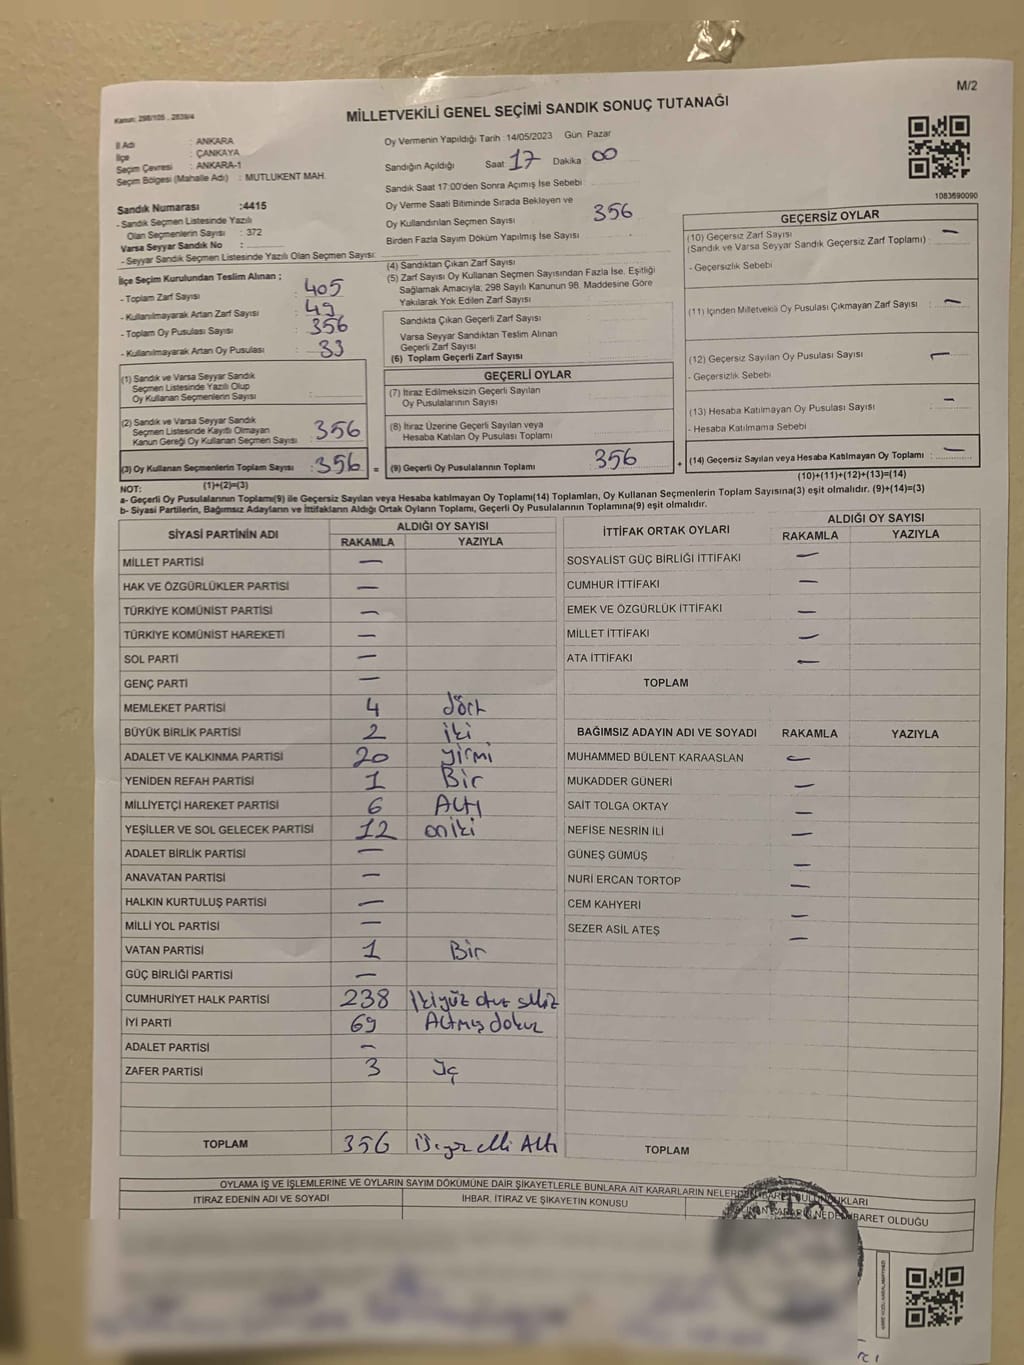 M/2
MİLLETVEKİLİ GENEL SEÇİMİ SANDIK SONUÇ TUTANAĞI
Kanun: 298/105 , 2839/4
İl Adı : ANKARA
İlçe : ÇANKAYA
Seçim Çevresi : ANKARA-1
Seçim Bölgesi (Mahalle Adı) : MUTLUKENT MAH.
Sandık Numarası :4415
- Sandık Seçmen Listesinde Yazılı
Olan Seçmenlerin Sayısı : 372
Varsa Seyyar Sandık No :
- Seyyar Sandık Seçmen Listesinde Yazılı Olan Seçmen Sayısı:
Oy Vermenin Yapıldığı Tarih : 14/05/2023 Gün: Pazar
Sandığın Açıldığı Saat 17 Dakika 00
Sandık Saat 17:00'den Sonra Açımış İse Sebebi
Oy Verme Saati Bitiminde Sırada Bekleyen ve
Oy Kullandırılan Seçmen Sayısı 356
Birden Fazla Sayım Döküm Yapılmış İse Sayısı
1083690090
İlçe Seçim Kurulundan Teslim Alınan ;
- Toplam Zarf Sayısı : 405
- Kullanılmayarak Artan Zarf Sayısı : 49
- Toplam Oy Pusulası Sayısı : 356
- Kullanılmayarak Artan Oy Pusulası : 33
(1) Sandık ve Varsa Seyyar Sandık
Seçmen Listesinde Yazılı Olup
Oy Kullanan Seçmenlerin Sayısı :
(2) Sandık ve Varsa Seyyar Sandık
Seçmen Listesinde Kayıtlı Olmayan
Kanun Gereği Oy Kullanan Seçmen Sayısı : 356
(3) Oy Kullanan Seçmenlerin Toplam Sayısı : 356 =
(1)+(2)=(3)
(4) Sandıktan Çıkan Zarf Sayısı
(5) Zarf Sayısı Oy Kullanan Seçmen Sayısından Fazla İse, Eşitliği
Sağlamak Amacıyla; 298 Sayılı Kanunun 98. Maddesine Göre
Yakılarak Yok Edilen Zarf Sayısı
Sandıkta Çıkan Geçerli Zarf Sayısı
Varsa Seyyar Sandıktan Teslim Alınan
Geçerli Zarf Sayısı
(6) Toplam Geçerli Zarf Sayısı
GEÇERLİ OYLAR
(7) İtiraz Edilmeksizin Geçerli Sayılan
Oy Pusulalarının Sayısı
(8) İtiraz Üzerine Geçerli Sayılan veya
Hesaba Katılan Oy Pusulası Toplamı
(9) Geçerli Oy Pusulalarının Toplamı 356 +
GEÇERSİZ OYLAR
(10) Geçersiz Zarf Sayısı
(Sandık ve Varsa Seyyar Sandık Geçersiz Zarf Toplamı) : —
- Geçersizlik Sebebi
(11) İçinden Milletvekili Oy Pusulası Çıkmayan Zarf Sayısı : —
(12) Geçersiz Sayılan Oy Pusulası Sayısı —
- Geçersizlik Sebebi
(13) Hesaba Katılmayan Oy Pusulası Sayısı : —
- Hesaba Katılmama Sebebi
(14) Geçersiz Sayılan veya Hesaba Katılmayan Oy Toplamı : —
(10)+(11)+(12)+(13)=(14)
NOT:
a- Geçerli Oy Pusulalarının Toplamı(9) ile Geçersiz Sayılan veya Hesaba katılmayan Oy Toplamı(14) Toplamları, Oy Kullanan Seçmenlerin Toplam Sayısına(3) eşit olmalıdır. (9)+(14)=(3)
b- Siyasi Partilerin, Bağımsız Adayların ve İttifakların Aldığı Ortak Oyların Toplamı, Geçerli Oy Pusulalarının Toplamına(9) eşit olmalıdır.
SİYASİ PARTİNİN ADI ALDIĞI OY SAYISI
RAKAMLA YAZIYLA
MİLLET PARTİSİ —
HAK VE ÖZGÜRLÜKLER PARTİSİ —
TÜRKİYE KOMÜNİST PARTİSİ —
TÜRKİYE KOMÜNİST HAREKETİ —
SOL PARTİ —
GENÇ PARTİ —
MEMLEKET PARTİSİ 4 dört
BÜYÜK BİRLİK PARTİSİ 2 iki
ADALET VE KALKINMA PARTİSİ 20 yirmi
YENİDEN REFAH PARTİSİ 1 Bir
MİLLİYETÇİ HAREKET PARTİSİ 6 Altı
YEŞİLLER VE SOL GELECEK PARTİSİ 12 oniki
ADALET BİRLİK PARTİSİ —
ANAVATAN PARTİSİ —
HALKIN KURTULUŞ PARTİSİ —
MİLLİ YOL PARTİSİ —
VATAN PARTİSİ 1 Bir
GÜÇ BİRLİĞİ PARTİSİ —
CUMHURİYET HALK PARTİSİ 238 İkiyüz otuz sekiz
İYİ PARTİ 69 Altmış dokuz
ADALET PARTİSİ —
ZAFER PARTİSİ 3 üç
TOPLAM 356 üçyüz elli Altı
İTTİFAK ORTAK OYLARI ALDIĞI OY SAYISI
RAKAMLA YAZIYLA
SOSYALİST GÜÇ BİRLİĞİ İTTİFAKI —
CUMHUR İTTİFAKI —
EMEK VE ÖZGÜRLÜK İTTİFAKI —
MİLLET İTTİFAKI —
ATA İTTİFAKI —
TOPLAM
BAĞIMSIZ ADAYIN ADI VE SOYADI RAKAMLA YAZIYLA
MUHAMMED BÜLENT KARAASLAN —
MUKADDER GÜNERİ —
SAİT TOLGA OKTAY —
NEFİSE NESRİN İLİ —
GÜNEŞ GÜMÜŞ —
NURİ ERCAN TORTOP —
CEM KAHYERİ —
SEZER ASİL ATEŞ —
TOPLAM
OYLAMA İŞ VE İŞLEMLERİNE VE OYLARIN SAYIM DÖKÜMÜNE DAİR ŞİKAYETLERLE BUNLARA AİT KARARLARIN BULUNDUKLARI
İTİRAZ EDENİN ADI VE SOYADI İHBAR, İTİRAZ VE ŞİKAYETİN KONUSU KARARIN NEDEN İBARET OLDUĞU